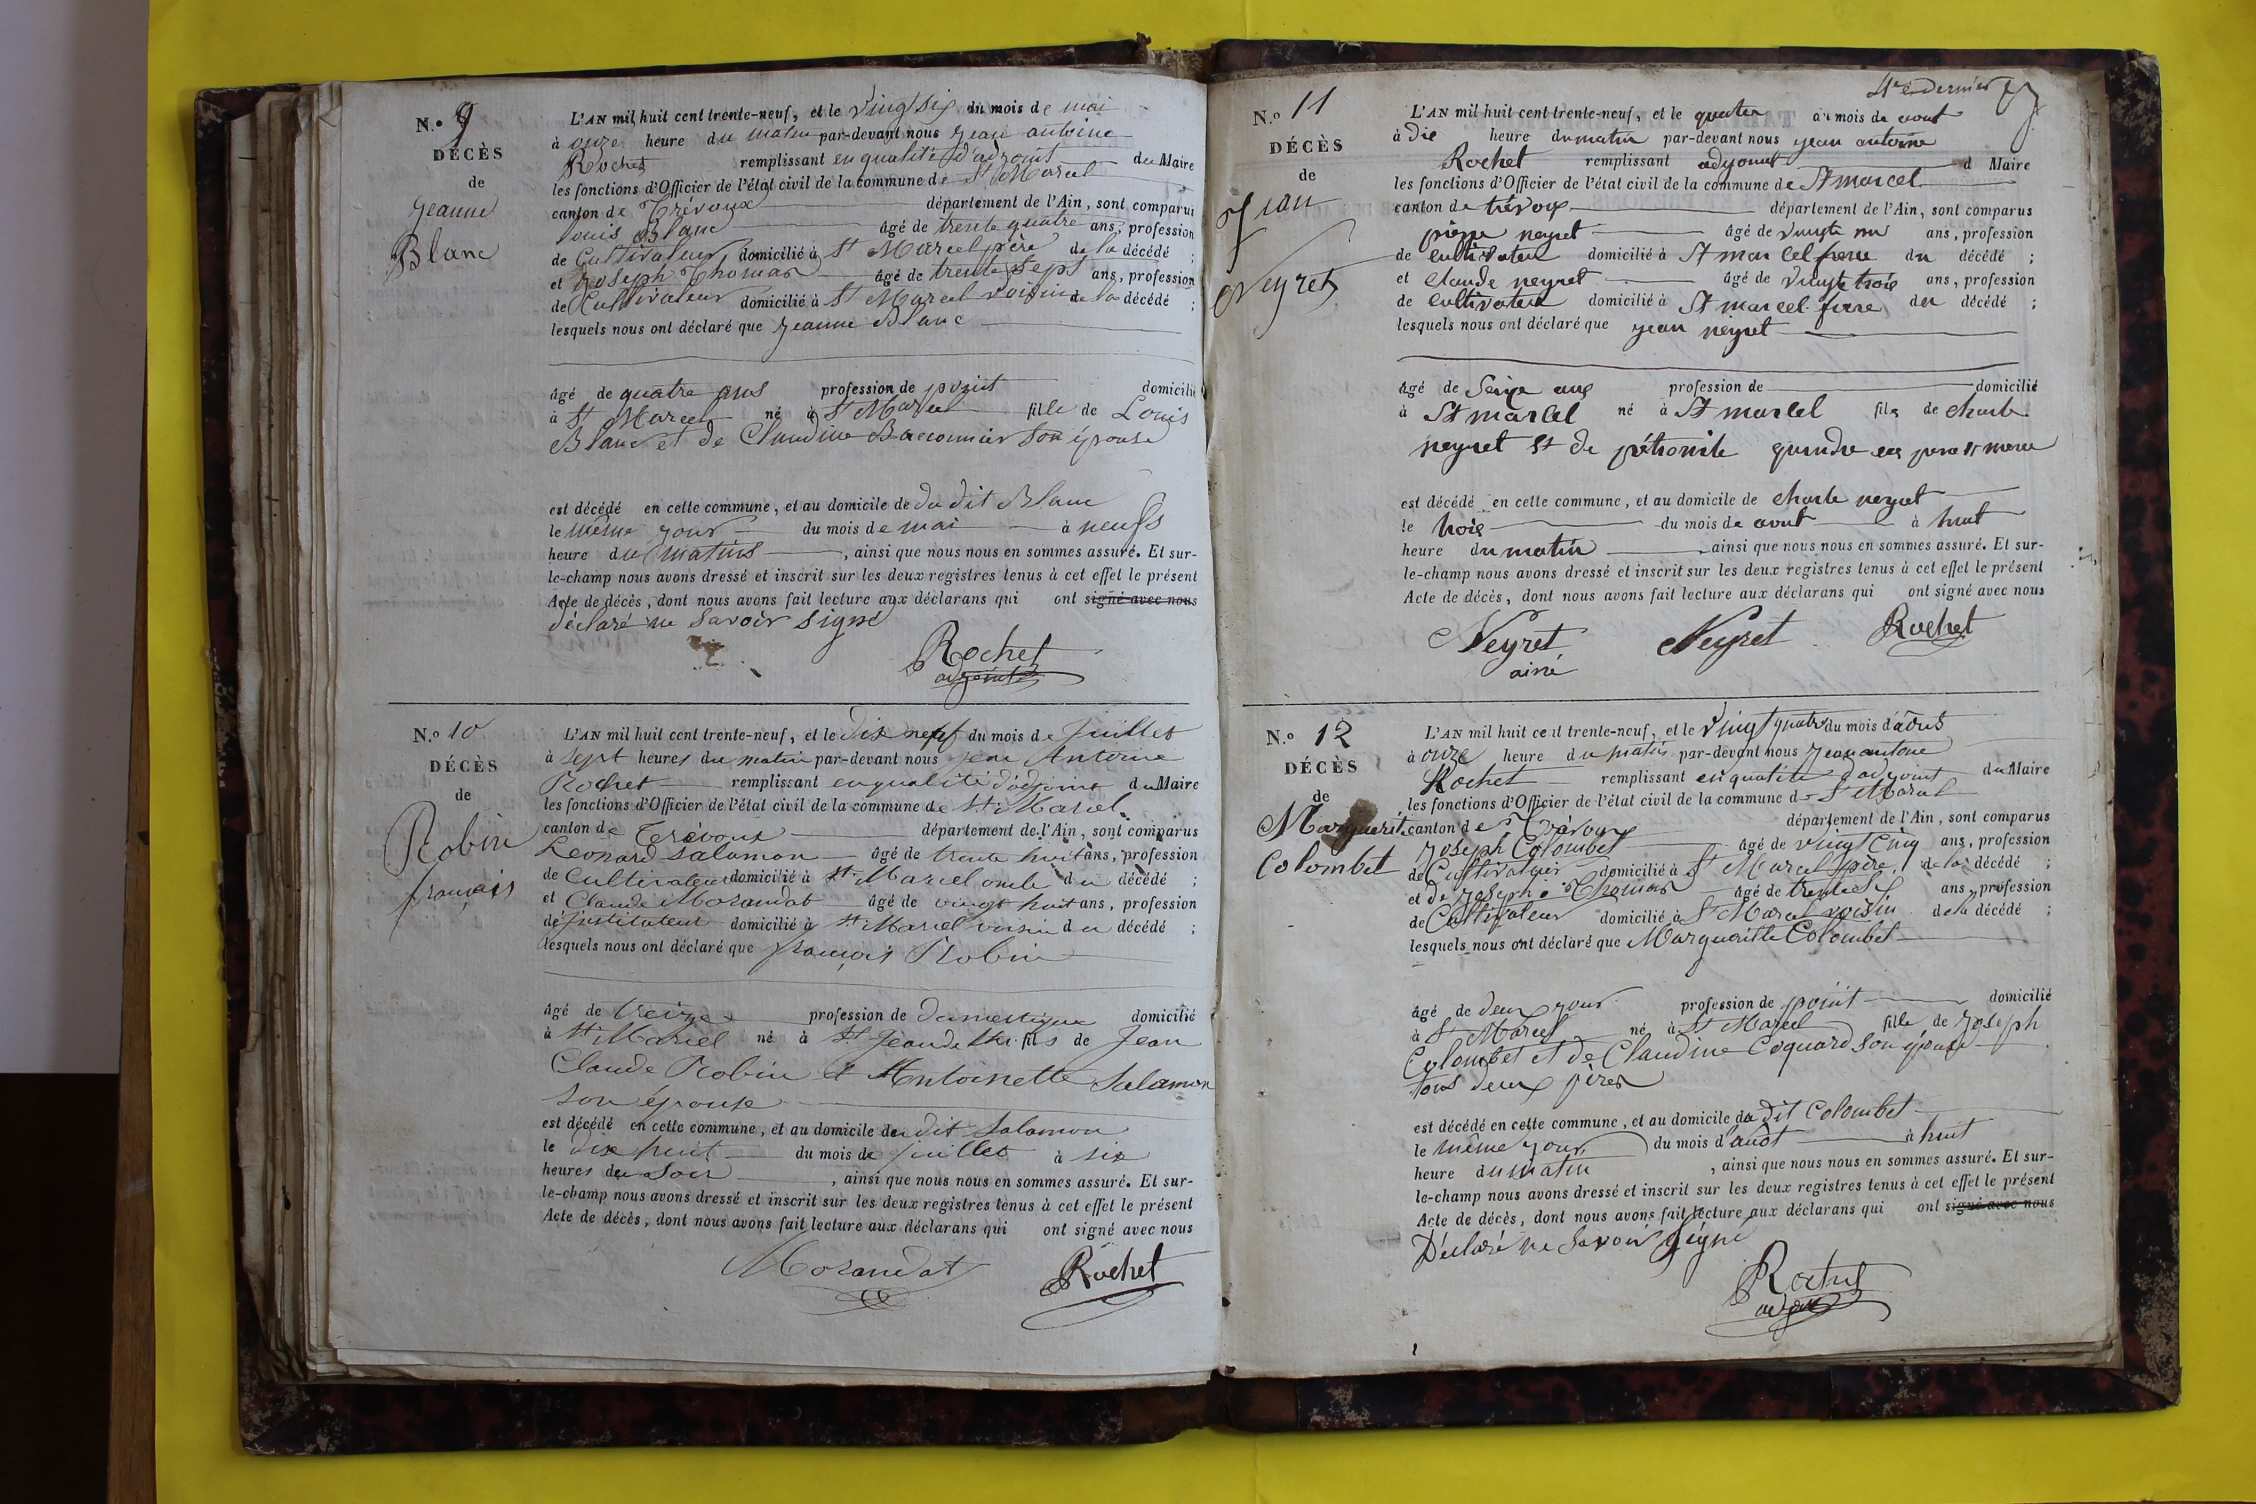 N.o 9
DÉCÈS
de
Jeanne
Blanc
L'AN mil huit cent trente-neuf, et le vingt six du mois de mai
à onze heure du matin par-devant nous Jean antoine
Rochet remplissant en qualité d'adjoint du Maire
les fonctions d'Officier de l'état civil de la commune de St Marcel
canton de Trévoux département de l'Ain, sont comparui
Louis Blanc âgé de trente quatre ans, profession
de Cultivateur domicilié à St Marcel père de la décédé ;
et Joseph Thomas âgé de trente sept ans, profession
de Cultivateur domicilié à St Marcel voisin de la décédé ;
lesquels nous ont déclaré que Jeanne Blanc
âgé de quatre ans profession de point domicilié
à St Marcel né à St Marcel fille de Louis
Blanc et de Claudine Baconnier son épouse
est décédé en cette commune, et au domicile de du dit Blanc
le même jour du mois de mai à neufs
heure du matins, ainsi que nous nous en sommes assuré. Et sur-
le-champ nous avons dressé et inscrit sur les deux registres tenus à cet effet le présent
Acte de décès, dont nous avons fait lecture aux déclarans qui ont signé avec nous
déclaré ne savoir signé
Rochet
adjoint
N.o 10
DÉCÈS
de
Robin
françois
L'AN mil huit cent trente-neuf, et le dix neuf du mois de Juillet
à sept heures du matin par-devant nous Jean Antoine
Rochet remplissant en qualité d'adjoint du Maire
les fonctions d'Officier de l'état civil de la commune de St Marcel
canton de Trévoux département de l'Ain, sont comparus
Leonard Salamon âgé de trente huit ans, profession
de Cultivateur domicilié à St Marcel oncle du décédé ;
et Claude Morandat âgé de vingt huit ans, profession
de Justituteur domicilié à St Marcel voisin du décédé ;
lesquels nous ont déclaré que françois Robin
âgé de treize profession de domestique domicilié
à St Marcel né à St Jean de fils de Jean
Claude Robin et Antoinette Salamon
son épouse
est décédé en cette commune, et au domicile de du dit Salamon
le dix huit du mois de juillet à six
heures du soir, ainsi que nous nous en sommes assuré. Et sur-
le-champ nous avons dressé et inscrit sur les deux registres tenus à cet effet le présent
Acte de décès, dont nous avons fait lecture aux déclarans qui ont signé avec nous
Morandat Rochet
4e e dernier
N.o 11
DÉCÈS
de
Jean
Neyret
L'AN mil huit cent trente-neuf, et le quatre du mois de aout
à dix heure du matin par-devant nous jean antoine
Rochet remplissant adjoint d Maire
les fonctions d'Officier de l'état civil de la commune de St marcel
canton de trévoux département de l'Ain, sont comparus
pierre neyret âgé de vingte un ans, profession
de cultivateur domicilié à St marcel frere du décédé ;
et Claude neyret âgé de vingte trois ans, profession
de cultivateur domicilié à St marcel frere du décédé ;
lesquels nous ont déclaré que jean neyret
âgé de Seize ans profession de domicilié
à St marcel né à St marcel fils de charle
neyret et de pétronile ses pere et mere
est décédé en cette commune, et au domicile de charle neyret
le trois du mois de aout à huit
heure du matin ainsi que nous nous en sommes assuré. Et sur-
le-champ nous avons dressé et inscrit sur les deux registres tenus à cet effet le présent
Acte de décès, dont nous avons fait lecture aux déclarans qui ont signé avec nous
Neyret Neyret Rochet
ainé
N.o 12
DÉCÈS
de
Marguerite
Colombet
L'AN mil huit cent trente-neuf, et le vingt quatre du mois d'août
à onze heure du matin par-devant nous Jean antoine
Rochet remplissant en qualité d'adjoint du Maire
les fonctions d'Officier de l'état civil de la commune de St Marcel
canton de Trévoux département de l'Ain, sont comparus
Joseph Colombet âgé de vingt cinq ans, profession
de Cultivateur domicilié à St Marcel père de la décédé ;
et de Joseph Thomas âgé de trente six ans, profession
de Cultivateur domicilié à St Marcel voisin de la décédé ;
lesquels nous ont déclaré que Margueritte Colombet
âgé de deux jour profession de point domicilié
à St Marcel né à St Marcel fille de Joseph
Colombet et de Claudine Coquard son épouse
tous deux pères
est décédé en cette commune, et au domicile du dit Colombet
le même jour du mois d'audt à huit
heure du matin, ainsi que nous nous en sommes assuré. Et sur-
le-champ nous avons dressé et inscrit sur les deux registres tenus à cet effet le présent
Acte de décès, dont nous avons fait lecture aux déclarans qui ont signé avec nous
Déclaré ne savoir signé
Rochet
adjoint